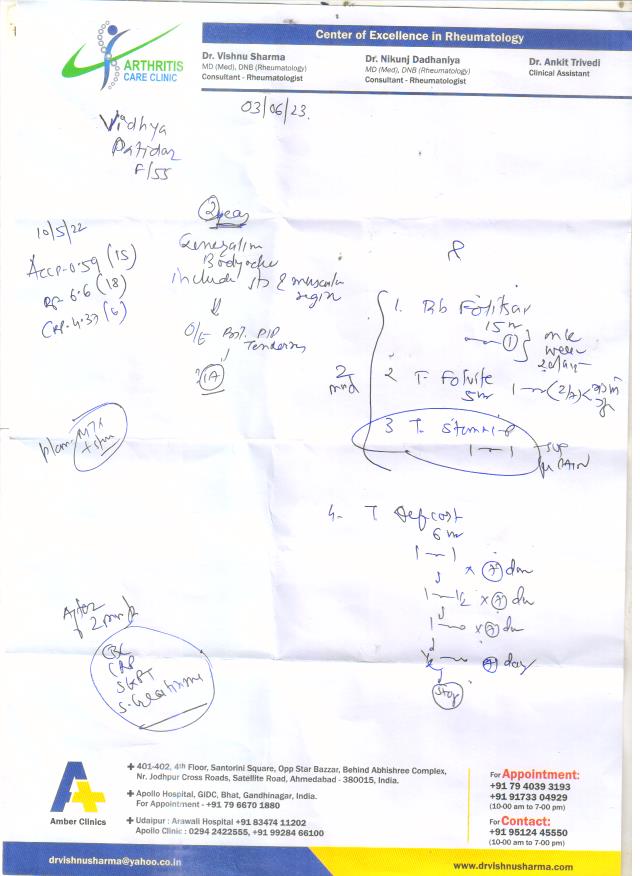 Center of Excellence in Rheumatology
ARTHRITIS
CARE CLINIC
Dr. Vishnu Sharma
MD (Med), DNB (Rheumatology)
Consultant - Rheumatologist
Dr. Nikunj Dadhaniya
MD (Med), DNB (Rheumatology)
Consultant - Rheumatologist
Dr. Ankit Trivedi
Clinical Assistant
03/06/23.
Vidhya
Patidar
F/55
10/5/22
ACCP-0.59 (15)
RF-6.6 (18)
CRP-4.33 (6)
2 year
Bodyache
include & muscular
region
O/E PIP
Tenderness
?IA
Plan-MTX
1. Folitrax
15
1
2 T. Folvite
5
3 T.
1 — 1
4- T Defcort
6
1 — 1
x 7
1 — 1/2 x 7
1 — 0 x 7
7 day
Stop
After
2
CBC
CRP
SGPT
S. Creatinine
Amber Clinics
401-402, 4th Floor, Santorini Square, Opp Star Bazzar, Behind Abhishree Complex,
Nr. Jodhpur Cross Roads, Satellite Road, Ahmedabad - 380015, India.
Apollo Hospital, GIDC, Bhat, Gandhinagar, India.
For Appointment - +91 79 6670 1880
Udaipur : Arawali Hospital +91 83474 11202
Apollo Clinic : 0294 2422555, +91 99284 66100
For Appointment:
+91 79 4039 3193
+91 91733 04929
(10-00 am to 7-00 pm)
For Contact:
+91 95124 45550
(10-00 am to 7-00 pm)
drvishnusharma@yahoo.co.in
www.drvishnusharma.com